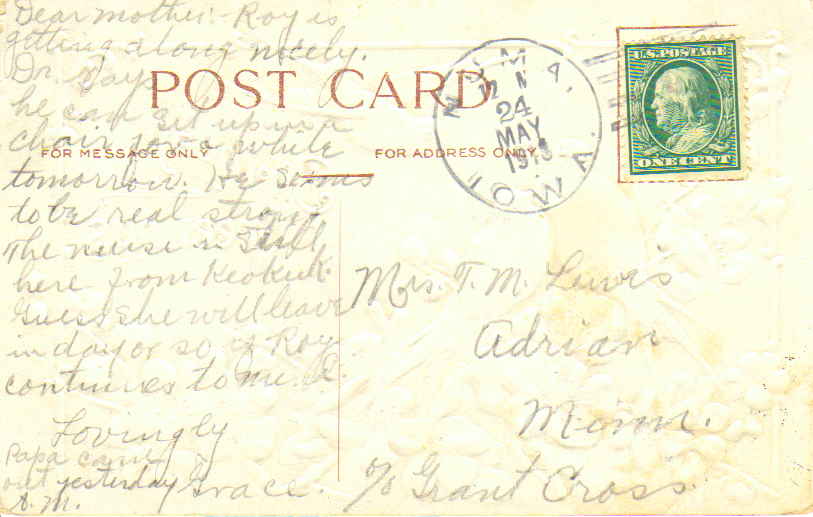 Dear mother:- Roy is
getting along nicely.
Dr. says
he can set up in a
chair for a while
tomorrow. He seems
to be real strong.
The nurse is still
here from Keokuk.
Guess she will leave
in day or so if Roy
continues to mend.
Lovingly
Grace.
Papa came
out yesterday
A.M.
POST CARD
FOR MESSAGE ONLY
FOR ADDRESS ONLY
12 M
24
MAY
IOWA.
U.S. POSTAGE
ONE CENT
Mrs. T. M. Lewis
Adrian
Minn.
c/o Grant Cross.